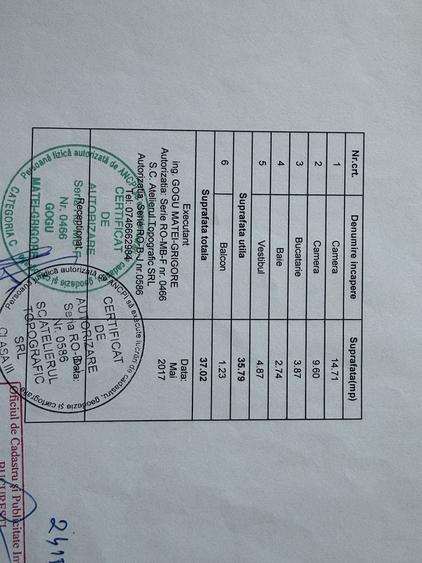 Nr.crt. Denumire incapere Suprafata(mp)
1 Camera 14.71
2 Camera 9.60
3 Bucatarie 3.87
4 Baie 2.74
5 Vestibul 4.87
Suprafata utila 35.79
6 Balcon 1.23
Suprafata totala 37.02
Executant Data:
ing. GOGU MATEI-GRIGORE Mai
Autorizatia: Serie RO-MB-F nr. 0466 2017
S.C. Atelierul Topografic SRL
Autorizatia: Serie RO-B-J nr.0586
Tel: 0746662964
Receptionat Data:
Persoană fizică autorizată de ANCPI
CERTIFICAT
DE
AUTORIZARE
Seria
Nr. 0466
GOGU
MATEI-GRIGORE
CATEGORIA C
Persoană juridică autorizată de ANCPI să execute lucrări de cadastru, geodezie și cartografie
CERTIFICAT
DE
AUTORIZARE
Seria RO-B-J
Nr. 0586
SC ATELIERUL
TOPOGRAFIC
SRL
CLASA III
Oficiul de Cadastru și Publicitate